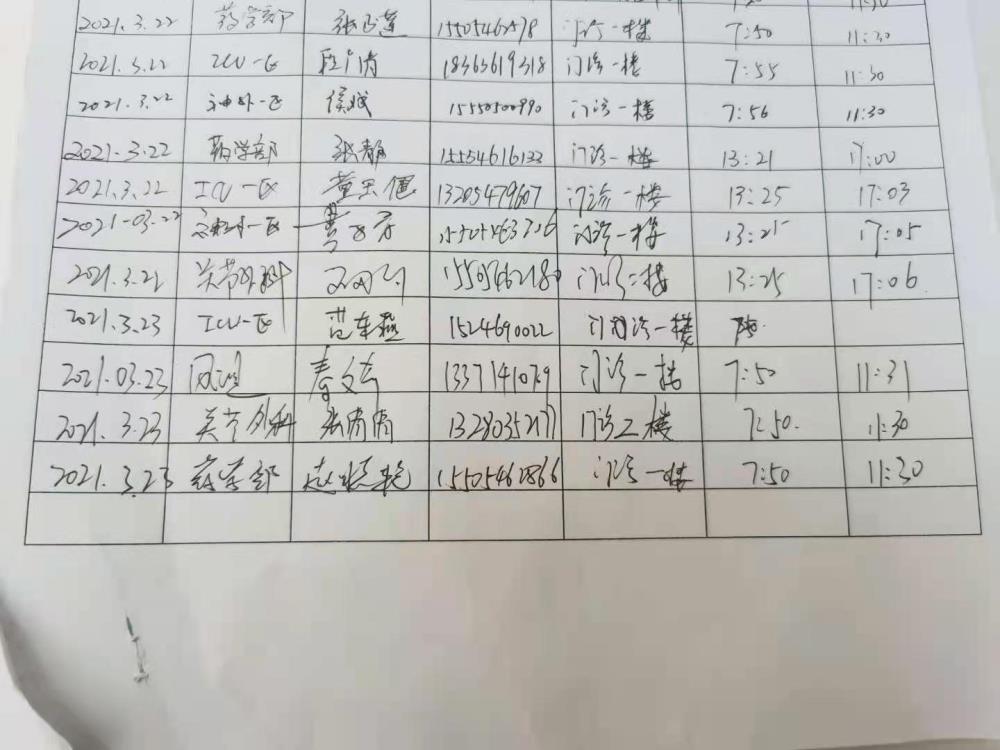 11:30
2021.3.22 药学部 张 莲 15505462578 门诊一楼 7:50 11:30
2021.3.22 ICU一区 18365619318 门诊一楼 7:55 11:30
2021.3.22 神外一区 侯斌 15550500990 门诊一楼 7:56 11:30
2021.3.22 药学部 张静 15554616133 门诊一楼 13:21 17:00
2021.3.22 ICU一区 董玉健 13205479607 门诊一楼 13:25 17:03
2021-03.22 神外一区 门诊一楼 13:25 17:05
2021.3.22 关节外科 15505462180 门诊二楼 13:25 17:06
2021.3.23 ICU一区 1524690022 门诊一楼
2021.03.23 门诊一楼 7:50 11:31
2021.3.23 关节外科 张倩倩 13280352177 门诊二楼 7:50. 11:30
2021.3.23 药学部 赵 艳 15505462866 门诊一楼 7:50 11:30